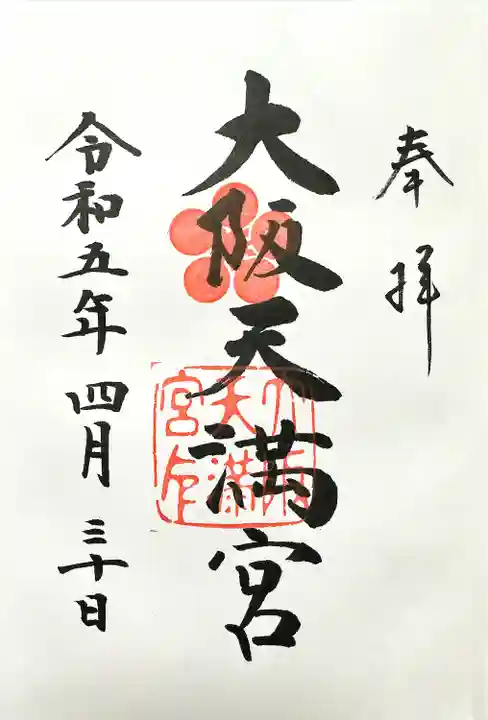 奉拝
大阪天満宮
大阪天満宮印
令和五年四月三十日